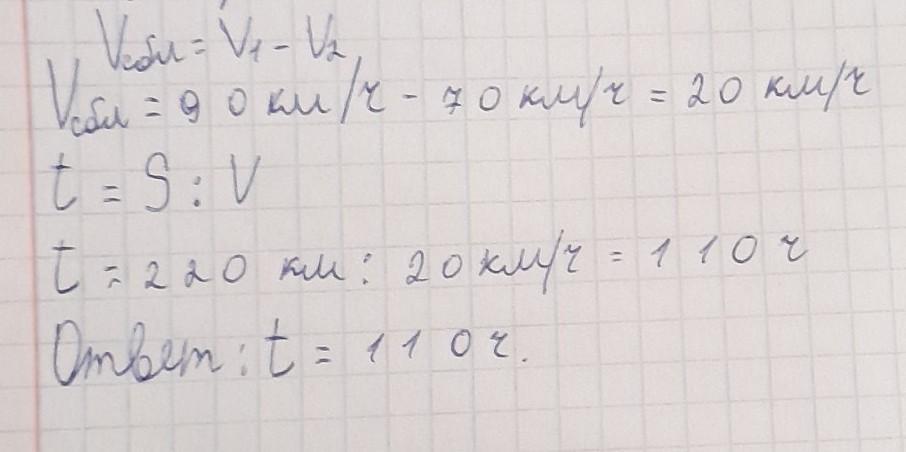 Vсбл = V1 - V2
Vсбл = 90 км/ч - 70 км/ч = 20 км/ч
t = S : V
t = 220 км : 20 км/ч = 110 ч
Ответ : t = 110 ч.